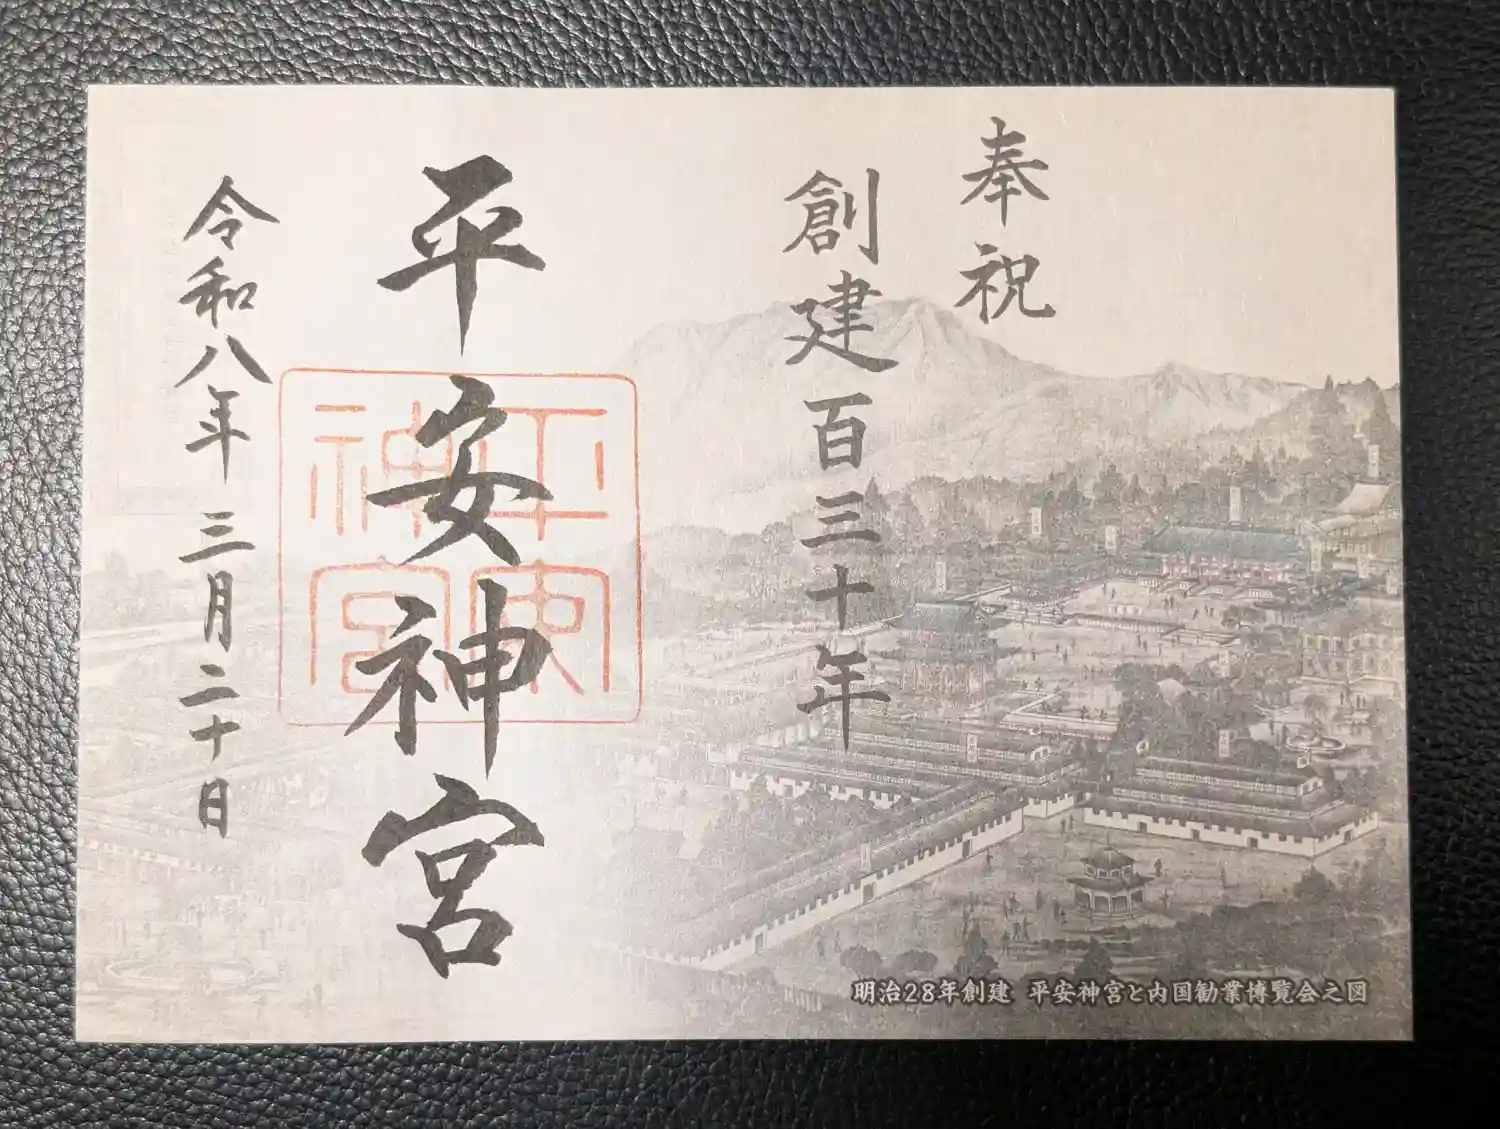 奉祝
創建百三十年
平安神宮
平安神宮
令和八年三月二十日
明治28年創建 平安神宮と内国勧業博覧会之図